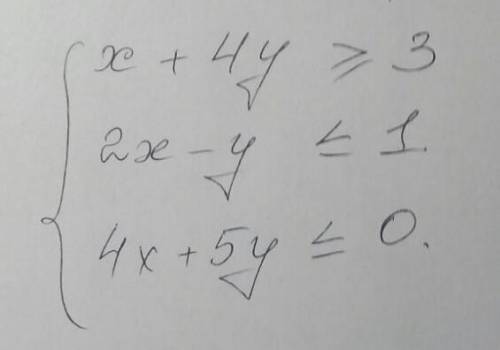 x + 4y ≥ 3
2x - y ≤ 1.
4x + 5y ≤ 0.